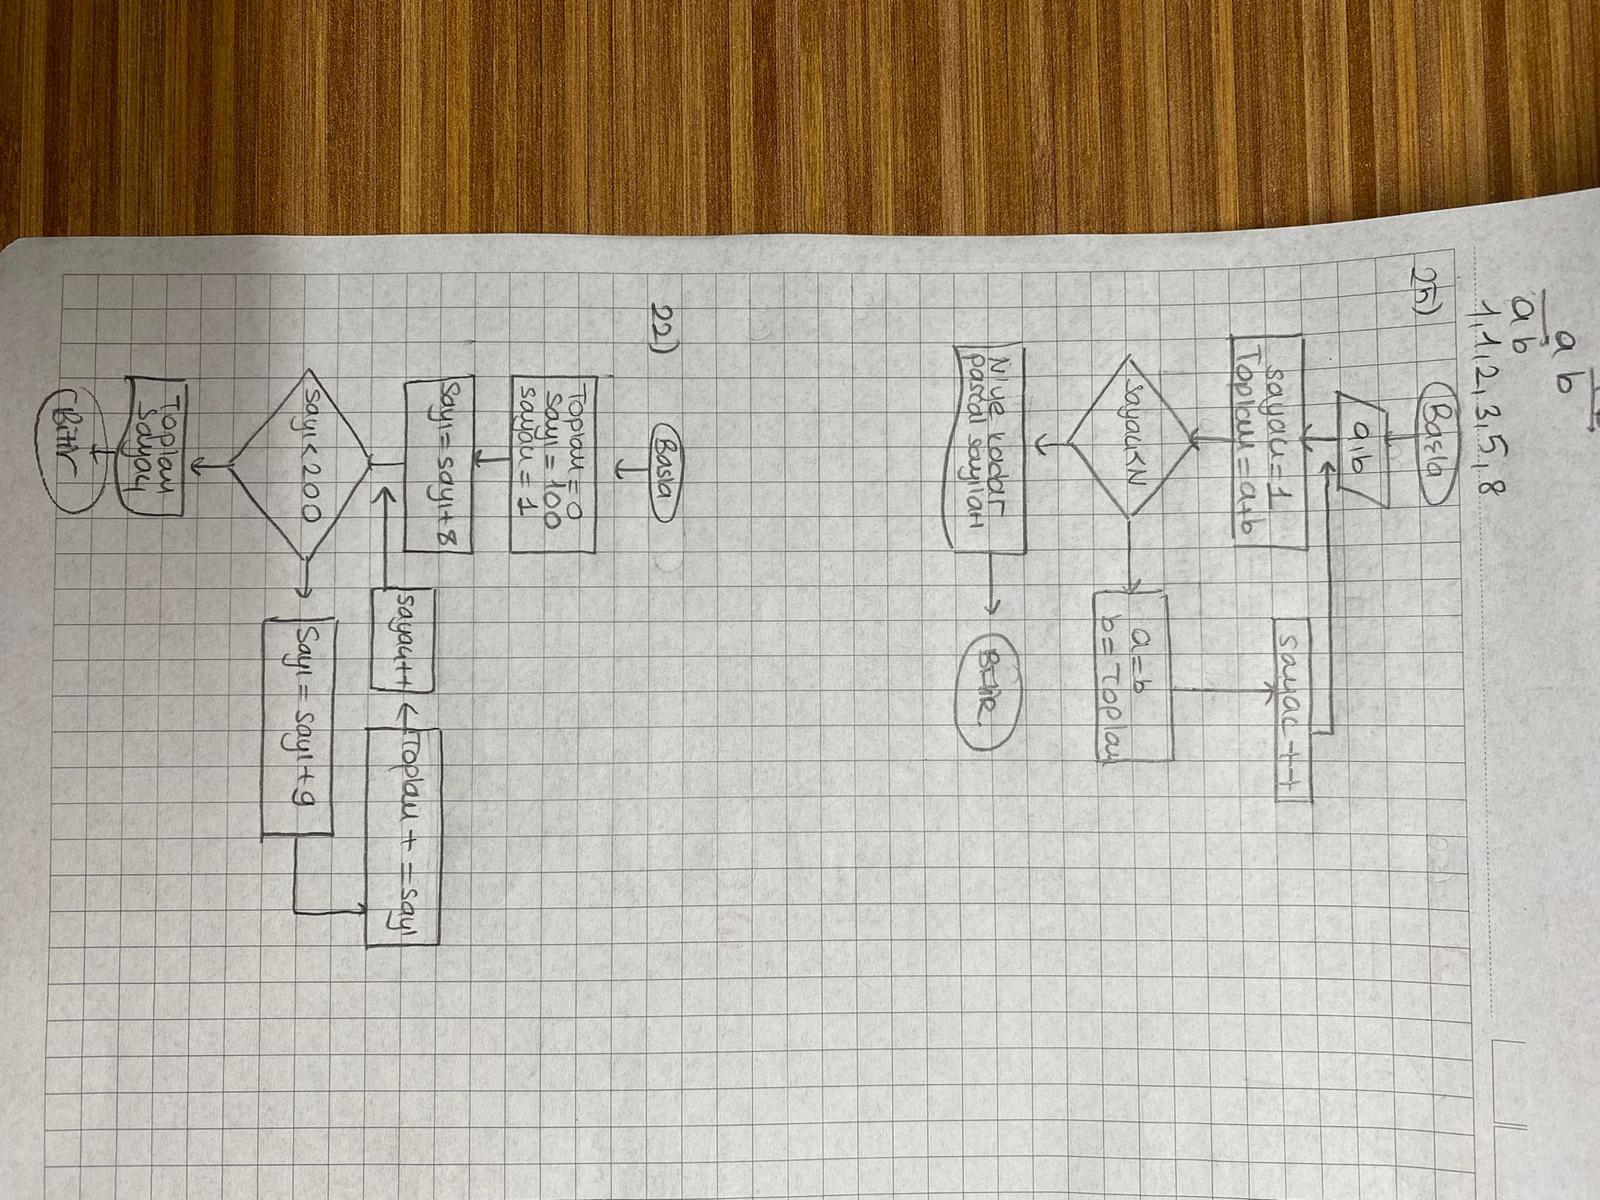 a b
a b
1, 1, 2, 3, 5, 8
25)
Başla
a,b
sayac=1
Toplam=a+b
sayac++
sayac<N
a=b
b=Toplam
N'ye kadar
pascal sayıları
Bitir
22)
Basla
Toplam=0
Sayı=100
sayac=1
Sayı=sayı+8
sayac++
Toplam+=sayı
sayı<200
Sayı=sayı+9
Toplam
sayaç
Bitir